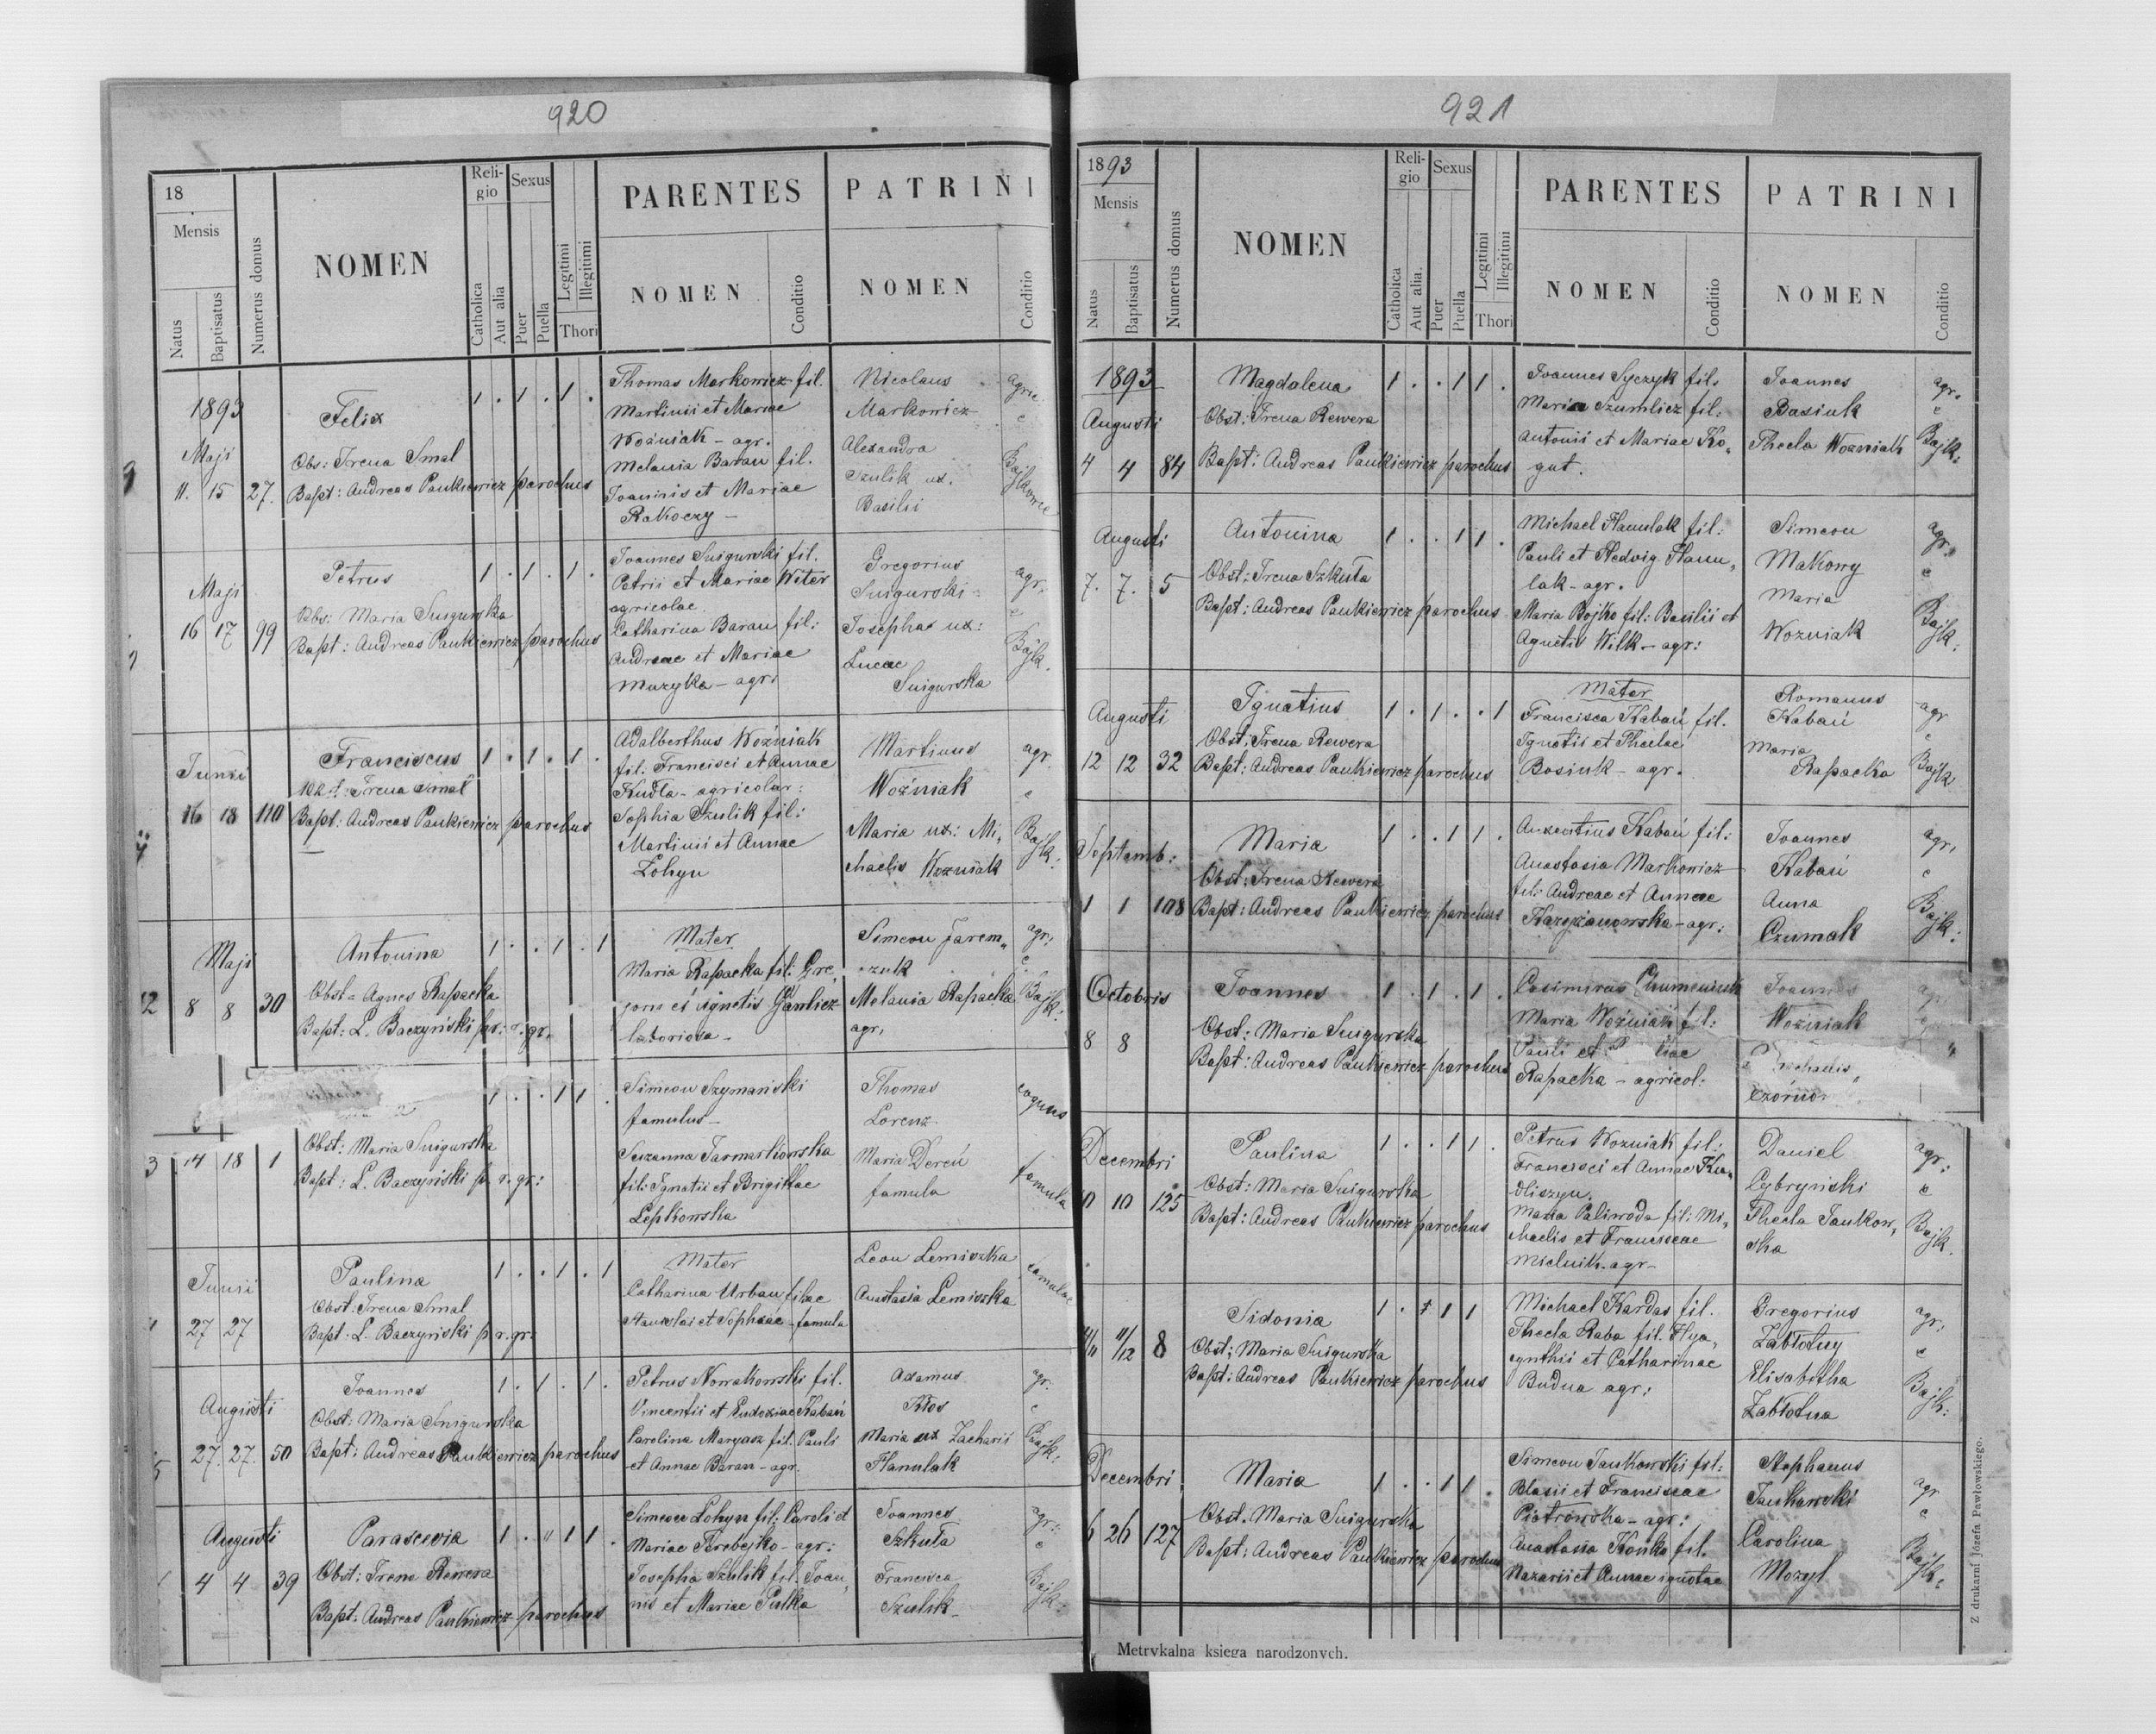 920
18
Mensis
Natus
Baptisatus
Numerus domus
NOMEN
Reli-
gio
Catholica
Aut alia
Sexus
Puer
Puella
Legitimi
Illegitimi
Thori
PARENTES
NOMEN
Conditio
PATRINI
NOMEN
Conditio
1893
Maji
11. 15 27.
Felix
Obs: Irena Smal
Bapt: Andreas Paukiewicz parochus
1 . 1 . 1 .
Thomas Markowicz fil.
Martinii et Mariae
Woźniak - agr.
Melania Baran fil.
Joannis et Mariae
Rakoczy -
Nicolaus
Markowicz
Alexandra
Szulik ux.
Basilii
agric
e
Bajkowce
Maji
16 17 99
Petrus
Obs: Maria Snigurska
Bapt: Andreas Paukiewicz parochus
1 . 1 . 1 .
Joannes Snigurski fil.
Petrii et Mariae Witer
agricolae
Catharina Baran fil:
Andreae et Mariae
Muzyka - agr:
Gregorius
Snigurski
Josepha ux:
Lucae
Snigurska
agr.
e
Bajk.
Junii
16 18 110
Franciscus
Obst: Irena Smal
Bapt: Andreas Paukiewicz parochus
1 . 1 . 1 .
Adalberthus Woźniak
fil. Francisci et Annae
Kudla - agricolar:
Sophia Szulik fil:
Martinii et Annae
Lohyn
Martinus
Woźniak
Maria ux: Mi,
chaelis Wozniak
agr.
e
Bajk:
Maji
8 8 30
Antonina
Obst: Agnes Rapacka
Bapt: L. Baczyński pr: r. gr.
1 . . 1 . 1
Mater
Maria Rapacka fil: Gre,
laboriosa -
Simeon Jarem,,
czuk
Melania Rapacka
agr.
agr:
e
Bajk:
3 14 18 1
Obst: Maria Snigurska
Bapt: L. Baczyński p. r. gr:
1 . . 1 1 .
Simeon Szymański
famulus -
Suzanna Jarmarkowska
fil: Ignatii et Brigittae
Lepkowska
Thomas
Lorenz
Maria Dereń
famula
coquus
famula
Junii
27 27
Paulina
Obst: Irena Smal
Bapt. L. Baczyński p r. gr:
1 . . 1 . 1
Mater
Catharina Urban filiae
Stanislai et Sophiae - famula
Leon Lemiszka
Anastasia Lemiszka
famulae
Augusti
27. 27. 50
Joannes
Obst: Maria Snigurska
Bapt: Andreas Paukiewicz parochus
1 . 1 . 1 .
Petrus Nowakowski fil.
Vincentii et Eudoxiae Kabań
Carolina Margasz fil. Pauli
et Annae Baran - agr.
Adamus
Kłos
Maria ux Zacharii
Hanulak
agr.
e
Bajk:
Augusti
4 4 39
Parascevia
Obst: Irena Rewera
Bapt. Andreas Paukiewicz parochus
1 . " 1 1 .
Simeon Lohyn fil: Caroli et
Mariae Terebejko - agr:
Josepha Szulik fil. Joan,
nis et Mariae Pulka
Joannes
Szkuta
Francisca
Szulik
agr:
e
Bajk:
921
1893
Mensis
Natus
Baptisatus
Numerus domus
NOMEN
Reli-
gio
Catholica
Aut alia.
Sexus
Puer
Puella
Legitimi
Illegitimi
Thori
PARENTES
NOMEN
Conditio
PATRINI
NOMEN
Conditio
1893
Augusti
4 4 84
Magdalena
Obst: Irena Rewera
Bapt: Andreas Paukiewicz parochus
1 . . 1 1 .
Joannes Syczyk fil:
Maria Szumlicz fil:
Antonii et Mariae Ko,
gut.
Joannes
Basiuk
Thecla Wozniak
agr.
e
Bajk:
Augusti
7. 7. 5
Antonina
Obst: Irena Szkuta
Bapt: Andreas Paukiewicz parochus
1 . . 1 1 .
Michael Hanulak fil:
Pauli et Hedvig Hanu,
lak - agr.
Maria Bojko fil: Basilii et
Agnetis Wilk - agr:
Simeon
Makowy
Maria
Wozniak
agr.
e
Bajk:
Augusti
12 12 32
Ignatius
Obst: Irena Rewera
Bapt: Andreas Paukiewicz parochus
1 . 1 . . 1
Mater
Francisca Kabań fil.
Ignatii et Theclae
Bosiuk - agr.
Romanus
Kabań
Maria
Rapacka
agr
e
Bajk:
Septemb:
1 1 108
Maria
Obst: Irena Rewera
Bapt: Andreas Paukiewicz parochus
1 . . 1 1 .
Auxentius Kabań fil:
Anastasia Markowicz
fil: Andreae et Annae
Joannes
Kabań
Anna
Czumak
agr.
e
Bajk:
Octobris
8 8
Joannes
Obst: Maria Snigurska
Bapt: Andreas Paukiewicz parochus
1 . 1 . 1 .
Casimirus
Maria Woźniak fil:
Pauli et
Rapacka - agricol:
Joannes
Woźniak
Decembri
10 10 125
Paulina
Obst: Maria Snigurska
Bapt: Andreas Paukiewicz parochus
1 . . 1 1 .
Petrus Wozniak fil:
Francisci et Annae Ku,
dliszyn.
Maria Paliwoda fil: Mi,
chaelis et Franciscae
Mielnik - agr -
Daniel
Cybryński
Thecla Jankow,
ska
agr:
e
Bajk.
11/11 11/12 8
Sidonia
Obst; Maria Snigurska
Bapt: Andreas Paukiewicz parochus
Michael Kardas fil.
Thecla Raba fil. Hya,
cynthii et Catharinae
Budna agr:
Gregorius
Zabłotny
Elisabetha
Zabłotna
agr:
e
Bajk:
Decembri
6 26 127
Maria
Obst. Maria Snigurska
Bapt: Andreas Paukiewicz parochus
1 . . 1 1 .
Simeon Jankowski fil:
Blasii et Franciscae
Piotrowska - agr:
Anastasia Konko fil.
Nazarii et Annae ignotae
Stephanus
Jankowski
Carolina
Mozyl
agr
e
Bajk:
Metrykalna księga narodzonych.
Z drukarni Józefa Pawłowskiego.